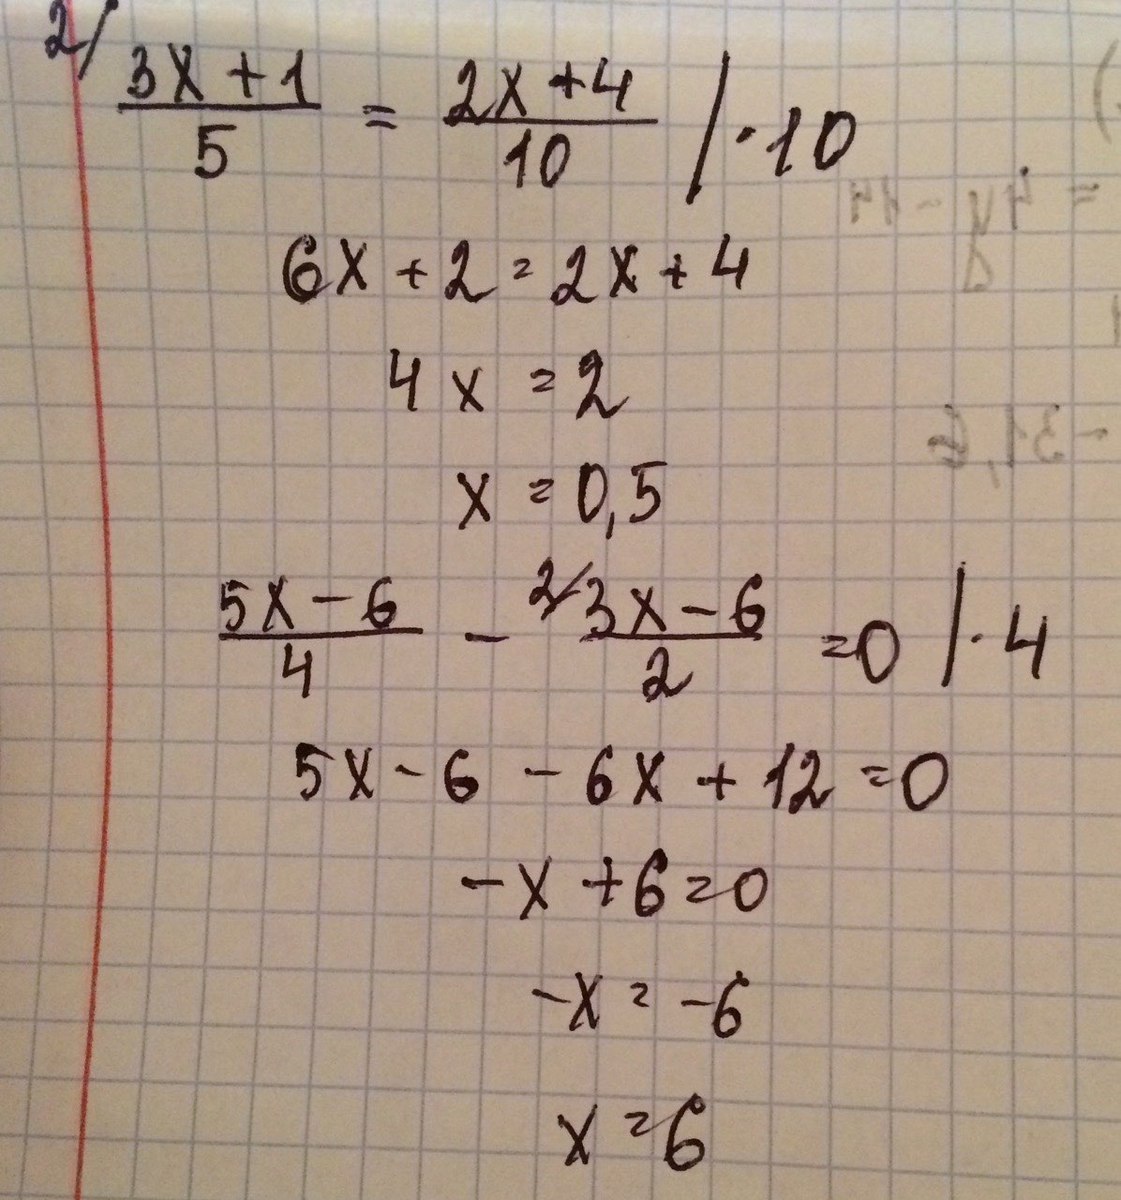 2/ (3x+1)/5 = (2x+4)/10 /·10
6x+2=2x+4
4x=2
x=0,5
(5x-6)/4 - 2/ (3x-6)/2 =0 /·4
5x-6-6x+12=0
-x+6=0
-x=-6
x=6